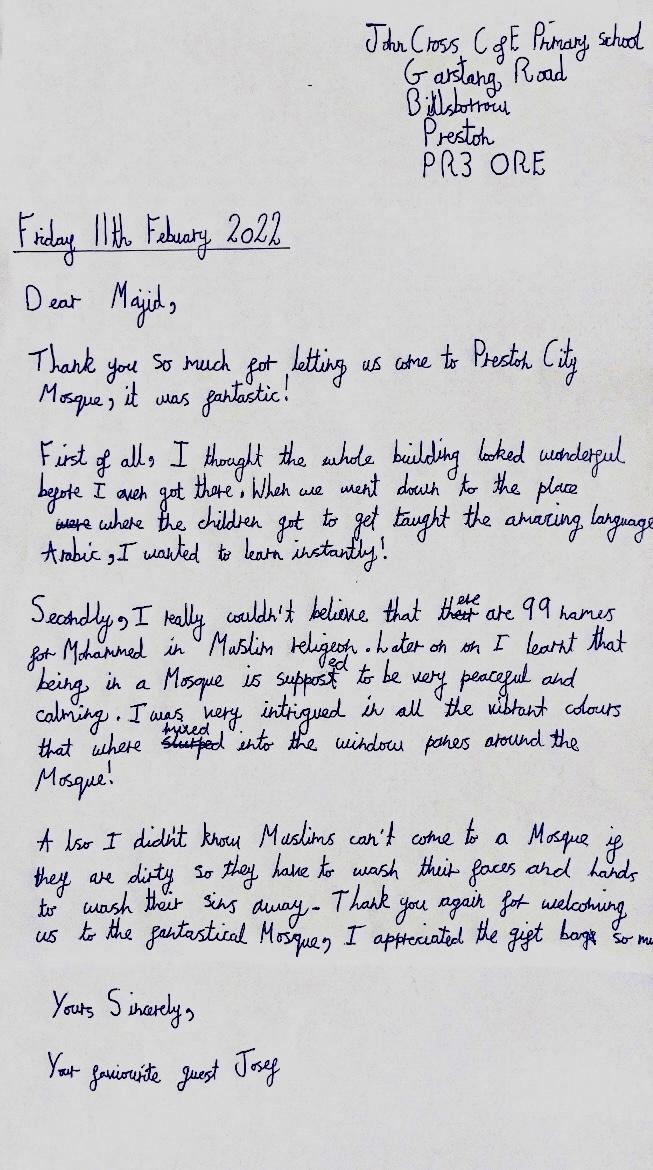 John Cross C of E Primary school
Garstang Road
Billsborrow
Preston
PR3 0RE
Friday 11th Febuary 2022
Dear Majid,
Thank you so much for letting us come to Preston City
Mosque, it was fantastic!
First of all, I thought the whole building looked wonderful
before I even got there. When we went down to the place
were where the children got to get taught the amazing language
Arabic, I wanted to learn instantly!
Secondly, I really couldn't believe that there are 99 names
for Mohammed in Muslim religeon. Later on on I learnt that
being in a Mosque is supposed to be very peaceful and
calming. I was very intrigued in all the vibrant colours
that where mixed into the window panes around the
Mosque!
Also I didn't know Muslims can't come to a Mosque if
they are dirty so they have to wash their faces and hands
to wash their sins away. Thank you again for welcoming
us to the fantastical Mosque, I appreciated the gift bags so mu
Yours Sincerely,
Your faviourite guest Josef